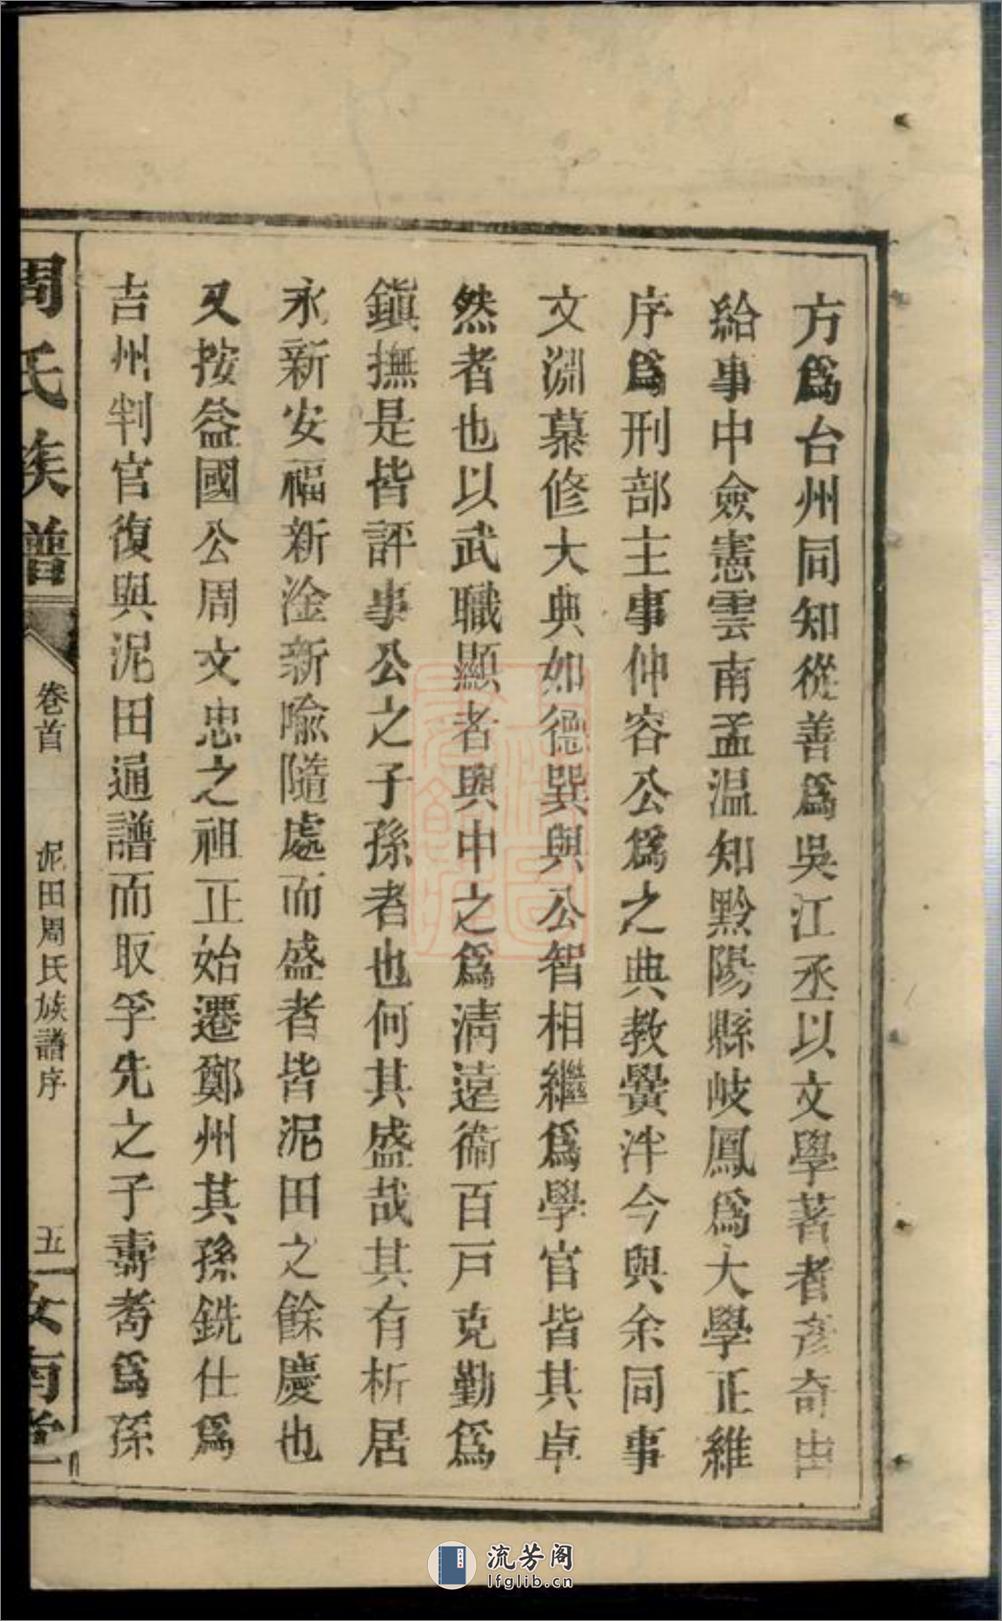 方爲台州同知從善爲吳江丞以文學著者彥奇由
給事中僉憲雲南孟温知黔陽縣岐鳳爲大學正維
序爲刑部主事仲容公爲之典教黌泮今與余同事
文淵慕修大典如德巽與公智相繼爲學官皆其卓
然者也以武職顯者與中之爲淸遠衞百戸克勤爲
鎭撫是皆評事公之子孫者也何其盛哉其有析居
永新安福新淦新喩隨處而盛者皆泥田之餘慶也
又按益國公周文忠之祖正始遷鄭州其孫銑仕爲
吉州判官復與泥田通譜而取孚先之子壽耇爲孫
周氏族譜
卷首
泥田周氏族譜序
五
汝南堂
流芳阁
lfglib.cn